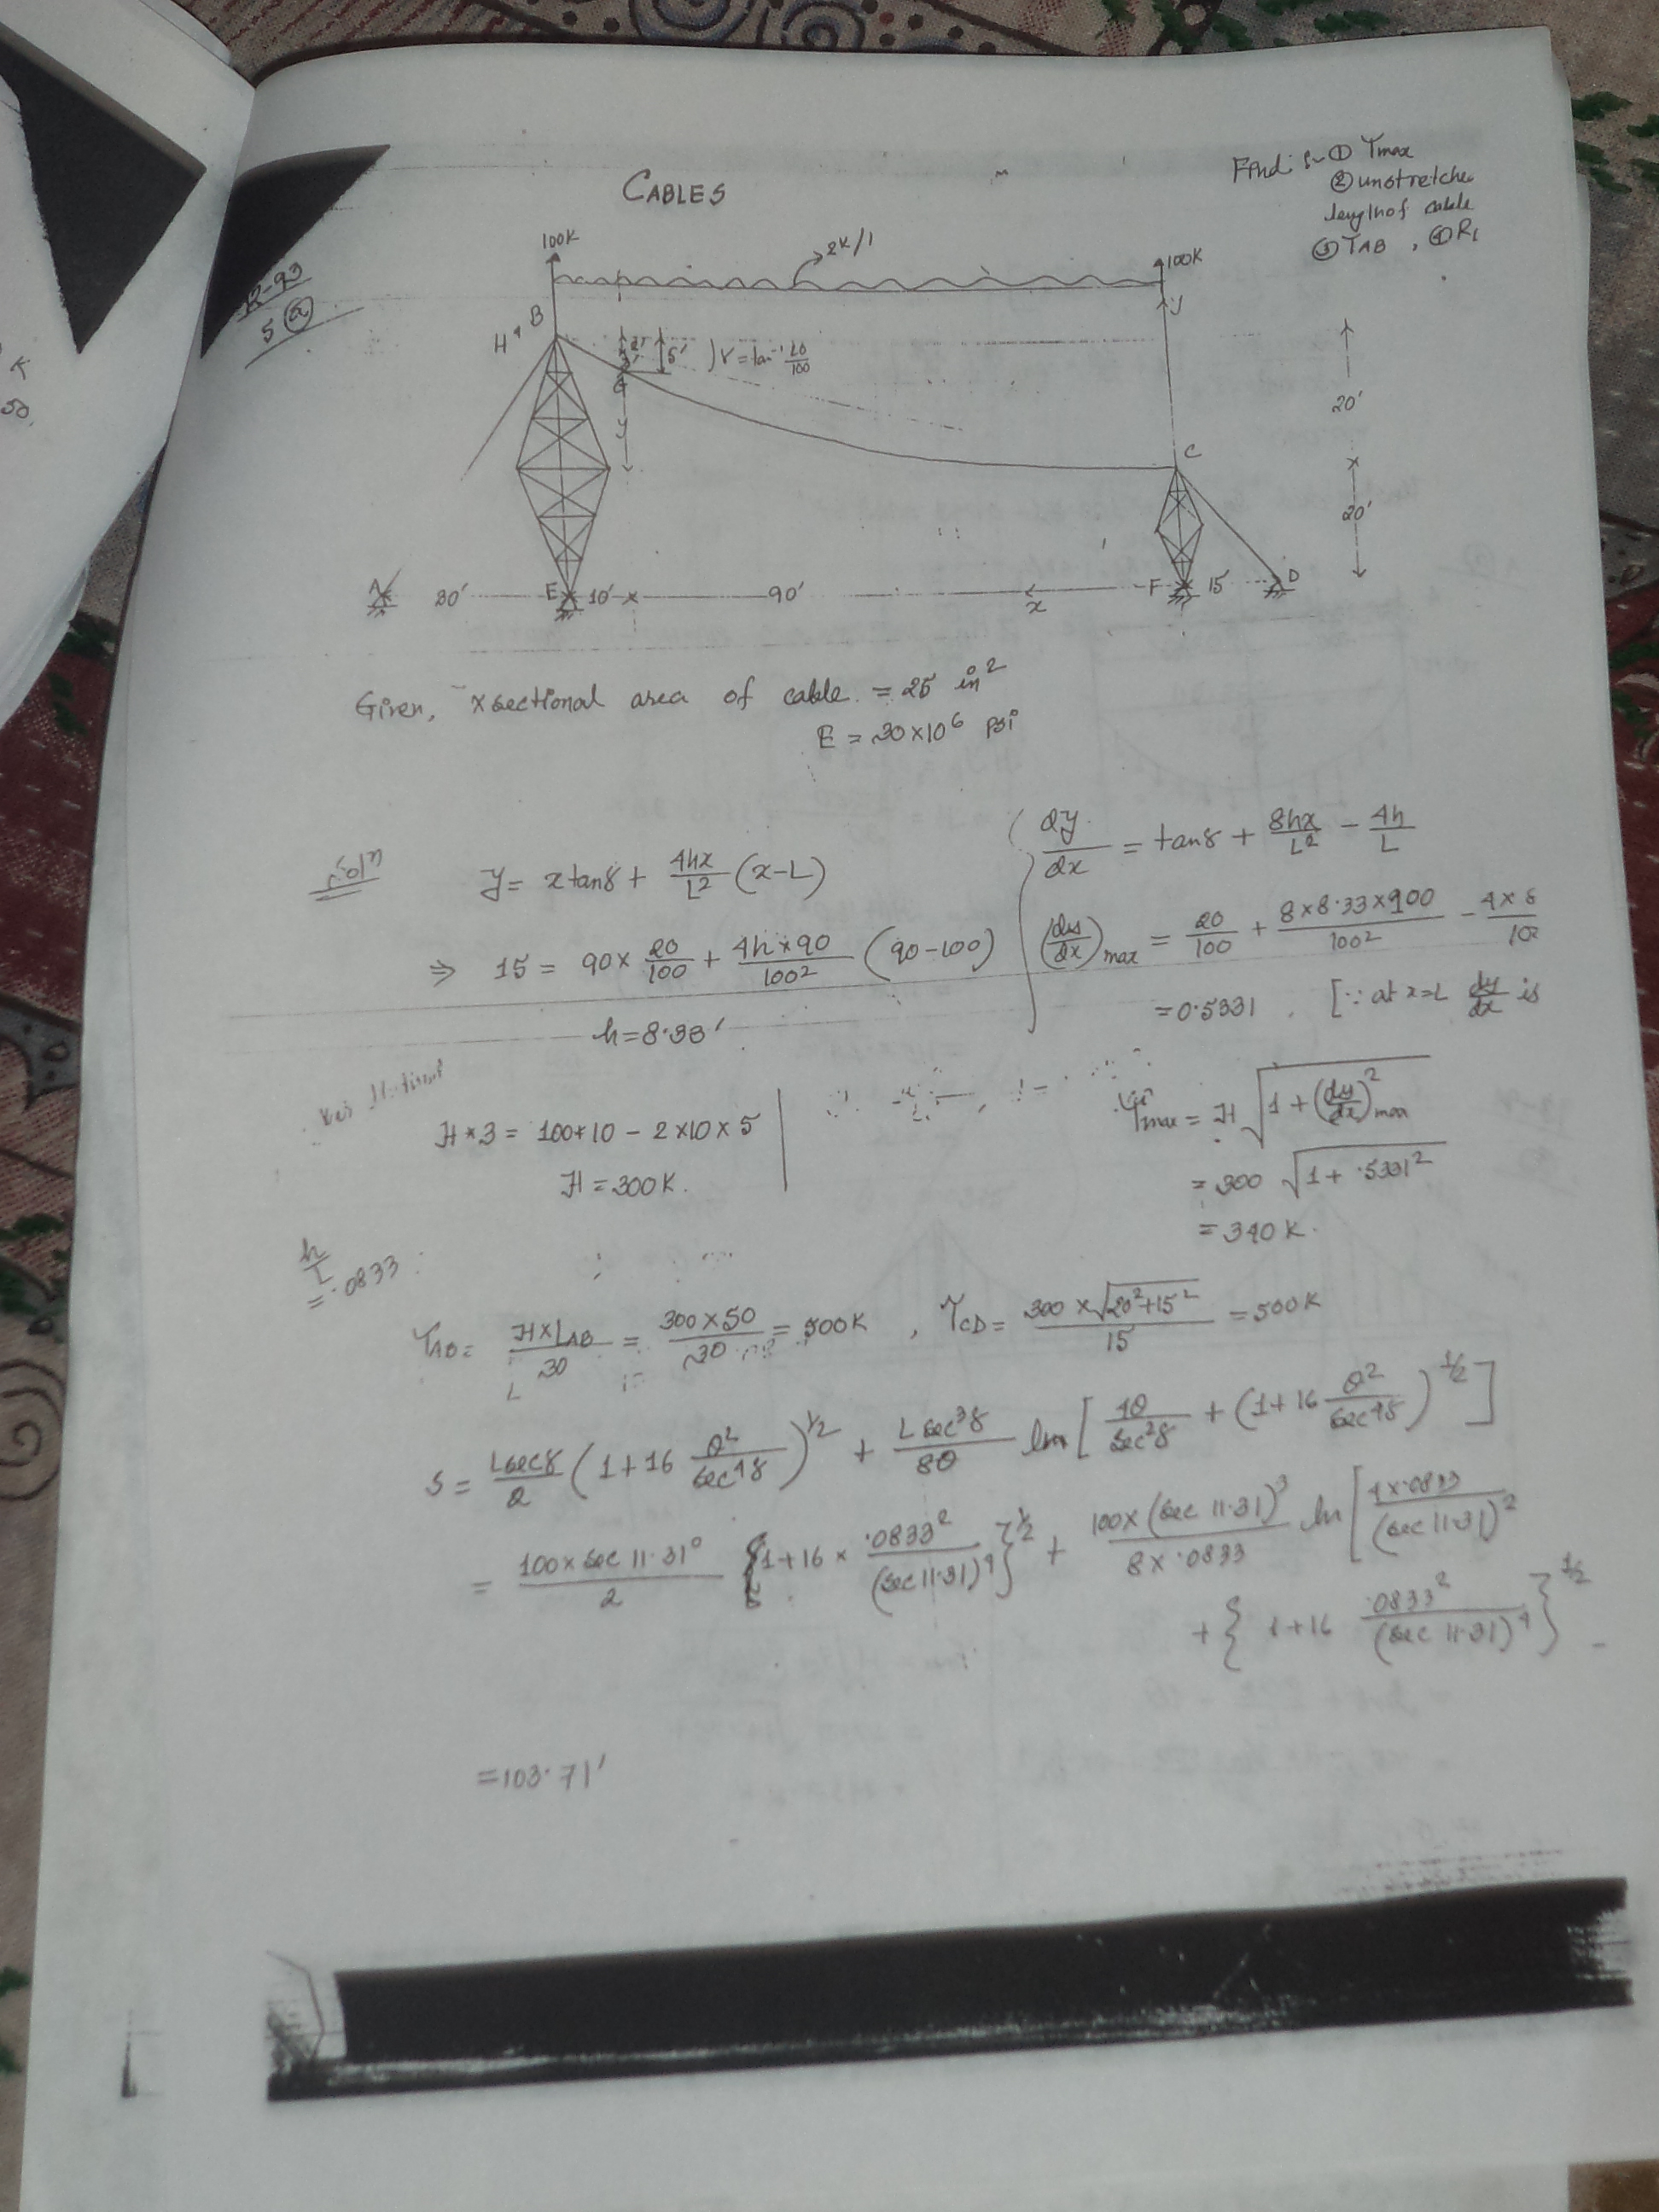 Find :- ① Tmax
② unstretche
length of cable
③ TAB , ④ R
CABLES
R-93
5 ⓐ
100K
2K/1
100K
y
H B
2'
3'
5'
) γ = tan⁻¹ 20/100
G
y
C
20'
20'
A 30' E 10' 90' x F 15' D
Given, Xsectional area of cable = 25 in²
E = 30×10⁶ psi
Solⁿ
y = x tanγ + 4hx/L² (x-L)
⇒ 15 = 90× 20/100 + 4h×90/100² (90-100)
h = 8.33'
dy/dx = tanγ + 8hx/L² - 4h/L
(dy/dx)max = 20/100 + 8×8.33×100/100² - 4×8/10
= 0.5331 . [∵ at x=L dy/dx is
H*3 = 100*10 - 2×10×5
H = 300K.
Tmax = H √1+(dy/dx)²max
= 300 √1+.5331²
= 340 K.
h/L
= .0833
TAB = H×LAB/30 = 300×50/30 = 500K , TCD = 300 × √20²+15²/15 = 500K
S = L secγ/2 (1+16 θ²/sec⁴γ)^1/2 + L sec³γ/8θ ln [4θ/sec²γ + (1+16 θ²/sec⁴γ)^1/2]
= 100×sec 11.31°/2 {1+16 × .0833²/(sec 11.31)⁴}^1/2 + 100×(sec 11.31)³/8×.0833 ln [4×.0833/(sec 11.31)²
+ { 1+16 .0833²/(sec 11.31)⁴}^1/2
= 103.71'